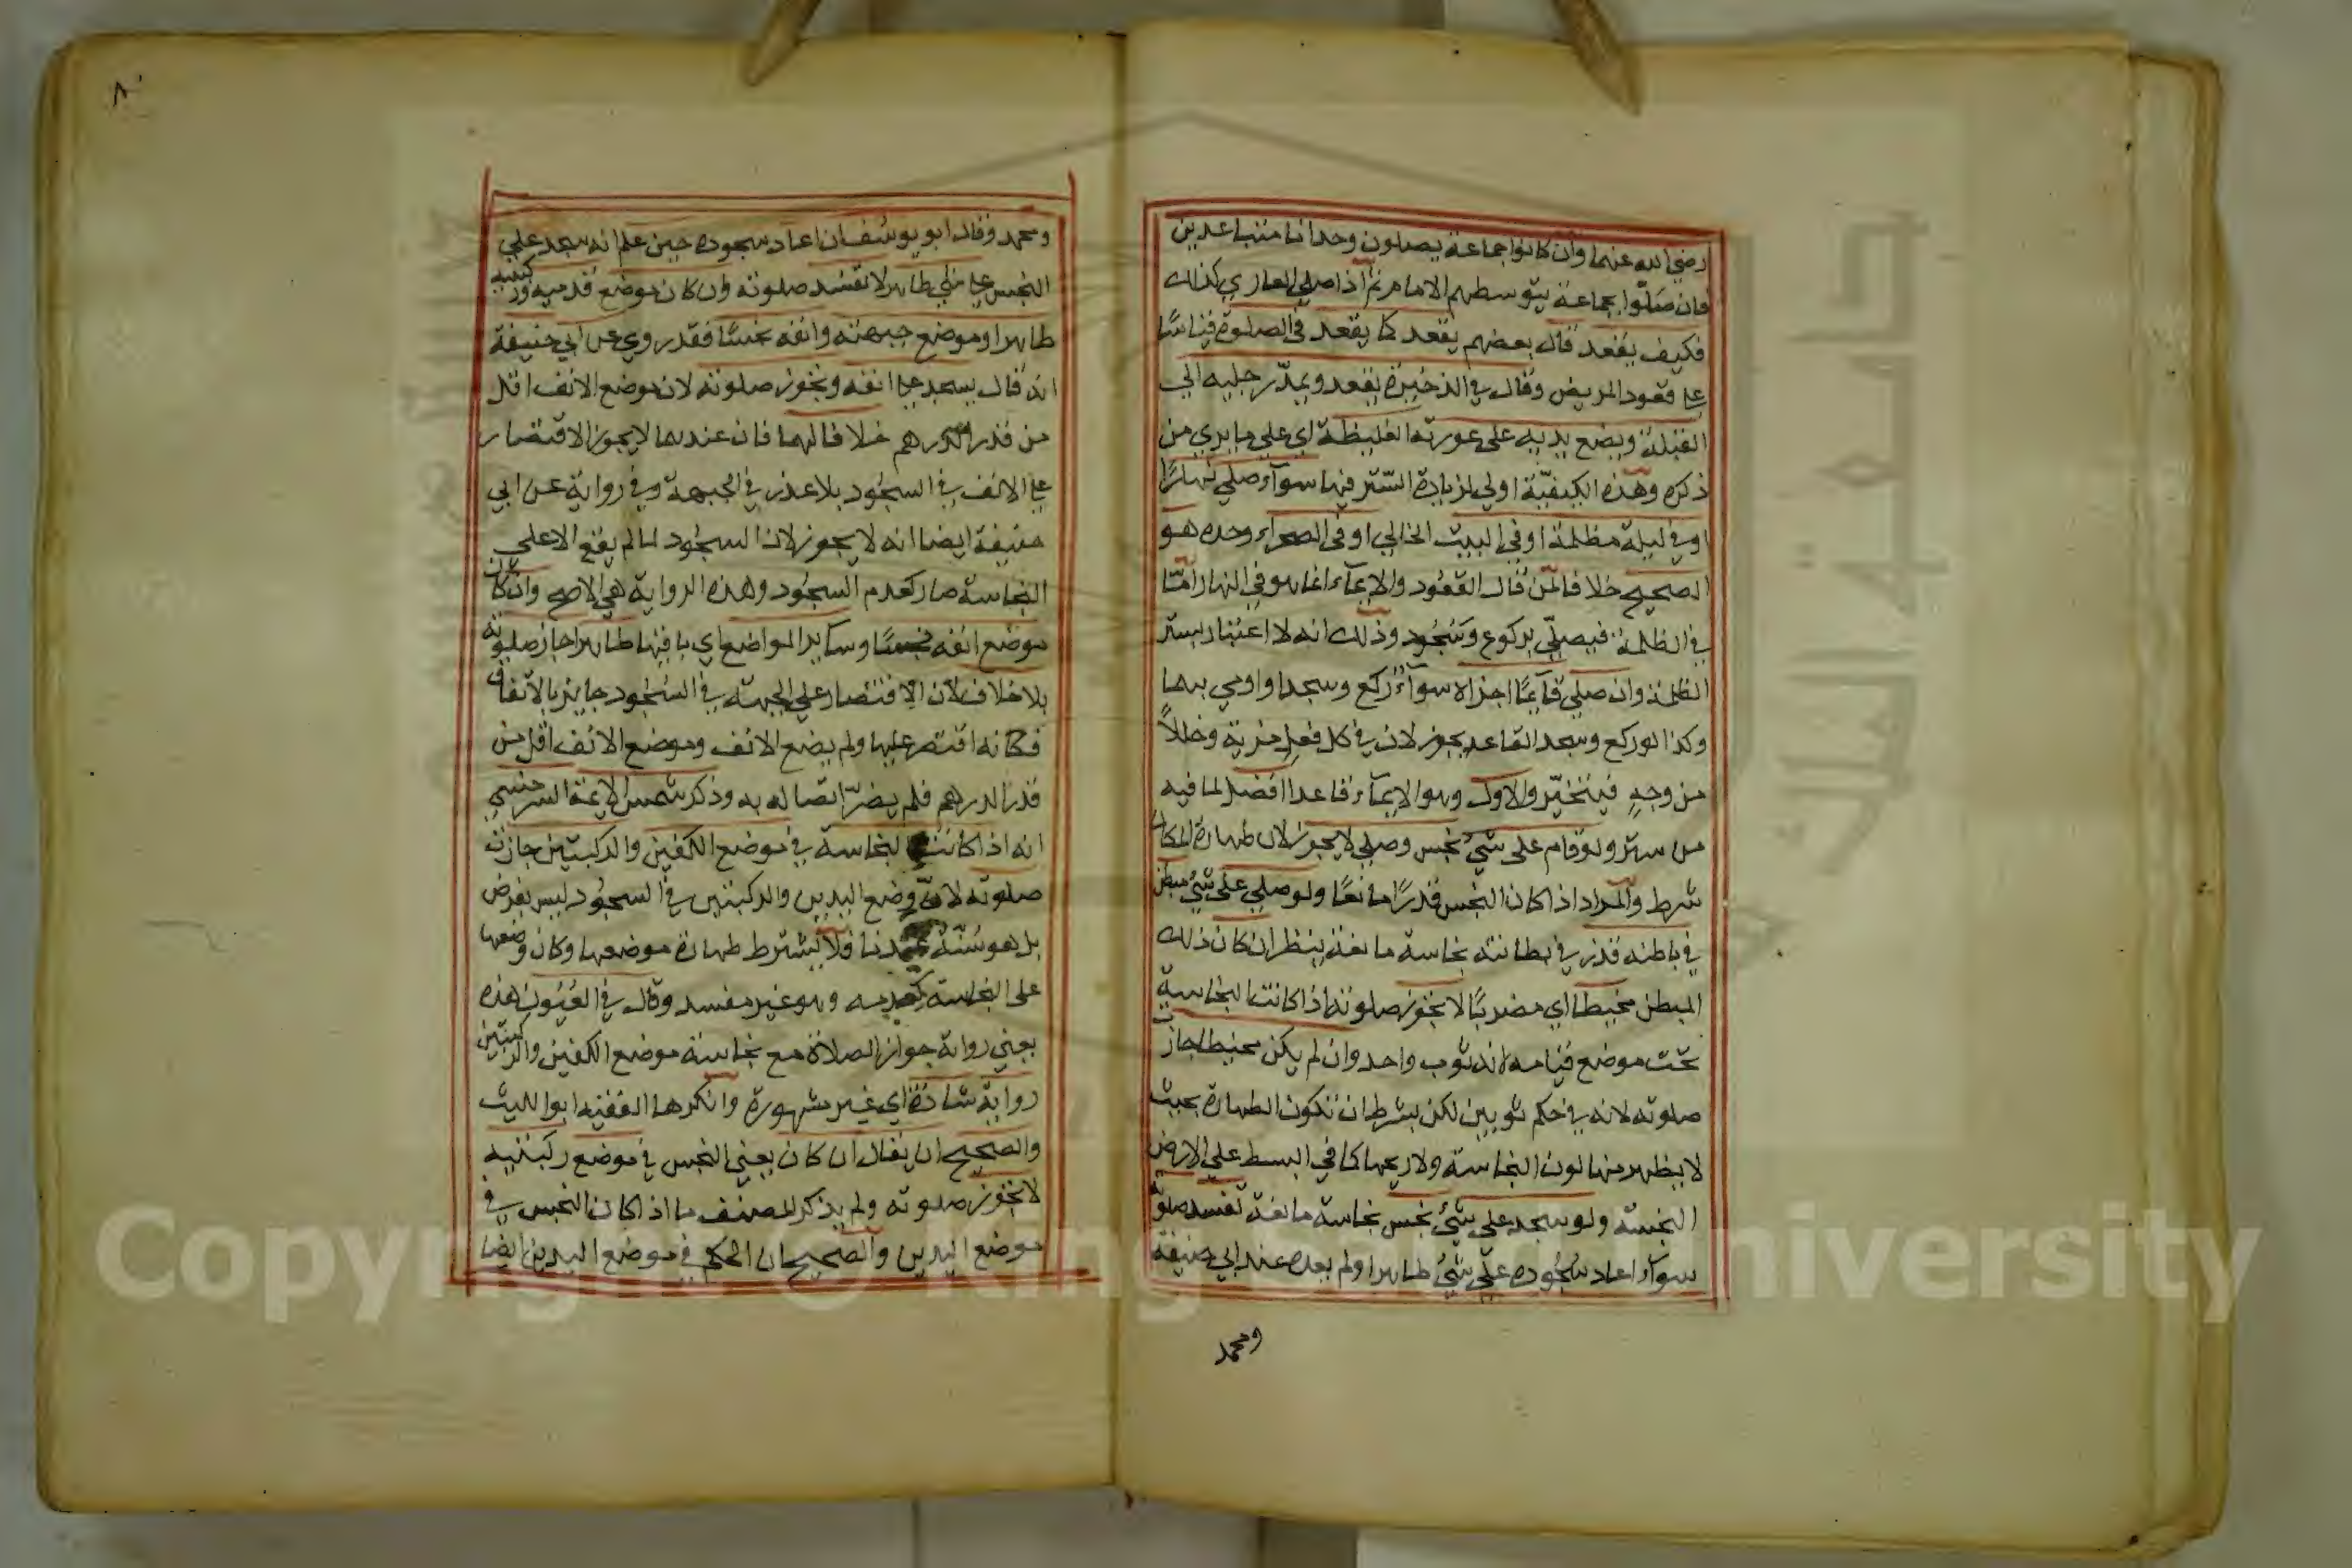 رضي الله عنهما وان كانوا جماعة يصلون وحدانا متباعدين
فان صلّوا بجماعة يتوسطهم الامام ثم اذا صلى العاري كذلك
فكيف يقعد قال بعضهم يقعد كما يقعد في الصلوة قياسًا
على قعود المريض وقال في الذخيرة يقعد ويمدّ رجليه الى
القبلة ويضع يديه على عورته الغليظة اي على ما يرى من
ذكره وهذه الكيفيّة اولى لزيادة السّتر فيها سوآء صلى نهارًا
او في ليلة مظلمة او في البيت الخالي او في الصحراء وحده هو
الصحيح خلافا لمن قال القعود والايمآء انما هو في النهار امّا
في الظلمة فيصلّي بركوع وسُجُود وذلك انه لا اعتبار بستر
الظلمة وان صلى قآئمًا اجزاه سوآء ركع وسجد او اومى بهما
وكذا لو ركع وسجد القاعد يجوز لان في كل فعل مزية وخللاً
من وجهٍ فيتخيّر والاول وهو الايمآء قاعدا افضل لما فيه
من ستر ولو قام على شئ نجس وصلى لا يجوز لان طهارة المكان
شرط والمراد اذا كان النجس قدرًا مانعًا ولو صلى على شئ مبطن
في باطنه قذر في بطانته نجاسة مانعة ينظر ان كان ذلك
المبطن مخيطا اي مضربًا لا تجوز صلوته اذا كانت النجاسة
تحت موضع قيامه لانه ثوب واحد وان لم يكن مخيطا جازت
صلوته لانه في حكم ثوبين لكن بشرط ان تكون الطهارة بحيث
لا يظهر منها لون النجاسة ولا ريحها كما في البسط على الارض
النجسة ولو سجد على شئ نجس نجاسة مانعة تفسد صلوته
سوآء اعاد سُجُوده على شئ طاهر او لم يعده عند ابي حنيفة
ومحمد
٨٠
ومحمد وقال ابو يوسف ان اعاد سجوده حين علم انه سجد على
النجس على شئ طاهر لا تفسد صلوته وان كان موضع قدميه وركبتيه
طاهرا وموضع جبهته وانفه نجسًا فقد روي عن ابي حنيفة
انه قال يسجد على انفه وتجوز صلوته لان موضع الانف اقل
من قدر الدرهم خلافا لهما فان عندهما لا يجوز الاقتصار
على الانف في السجود بلا عذر في الجبهة وفي رواية عن ابي
حنيفة ايضا انه لا يجوز لان السجود لما لم يقع الا على
النجاسة صار كعدم السجود وهذه الرواية هي الاصح وان كان
موضع انفه نجسًا وسائر المواضع اي باقيها طاهرا جاز صلوته
بلا خلاف لان الاقتصار على الجبهة في السجود جايز بالاتفاق
فكانه اقتصر عليها ولم يضع الانف وموضع الانف اقل من
قدر الدرهم فلم يضرّ اتصاله به وذكر شمس الايمة السرخسي
انه اذا كانت النجاسة في موضع الكفين والركبتين جازت
صلوته لانّ وضع اليدين والركبتين في السجود ليس بفرض
بل هو سُنّة عندنا فلا يشترط طهارة موضعها وكان وضعها
على النجاسة كعدمه وهو غير مفسد وقال في العيون هذه
يعني رواية جواز الصلاة مع نجاسة موضع الكفين والركبتين
رواية شاذة اي غير مشهورة وانكرها الفقيه ابو الليث
والصحيح ان يقال ان كان يعني النجس في موضع ركبتيه
لا تجوز صلوته ولم يذكر المصنف ما اذا كان النجس في
موضع اليدين والصحيح ان الحكم في موضع اليدين ايضا
Copyright © King Saud University